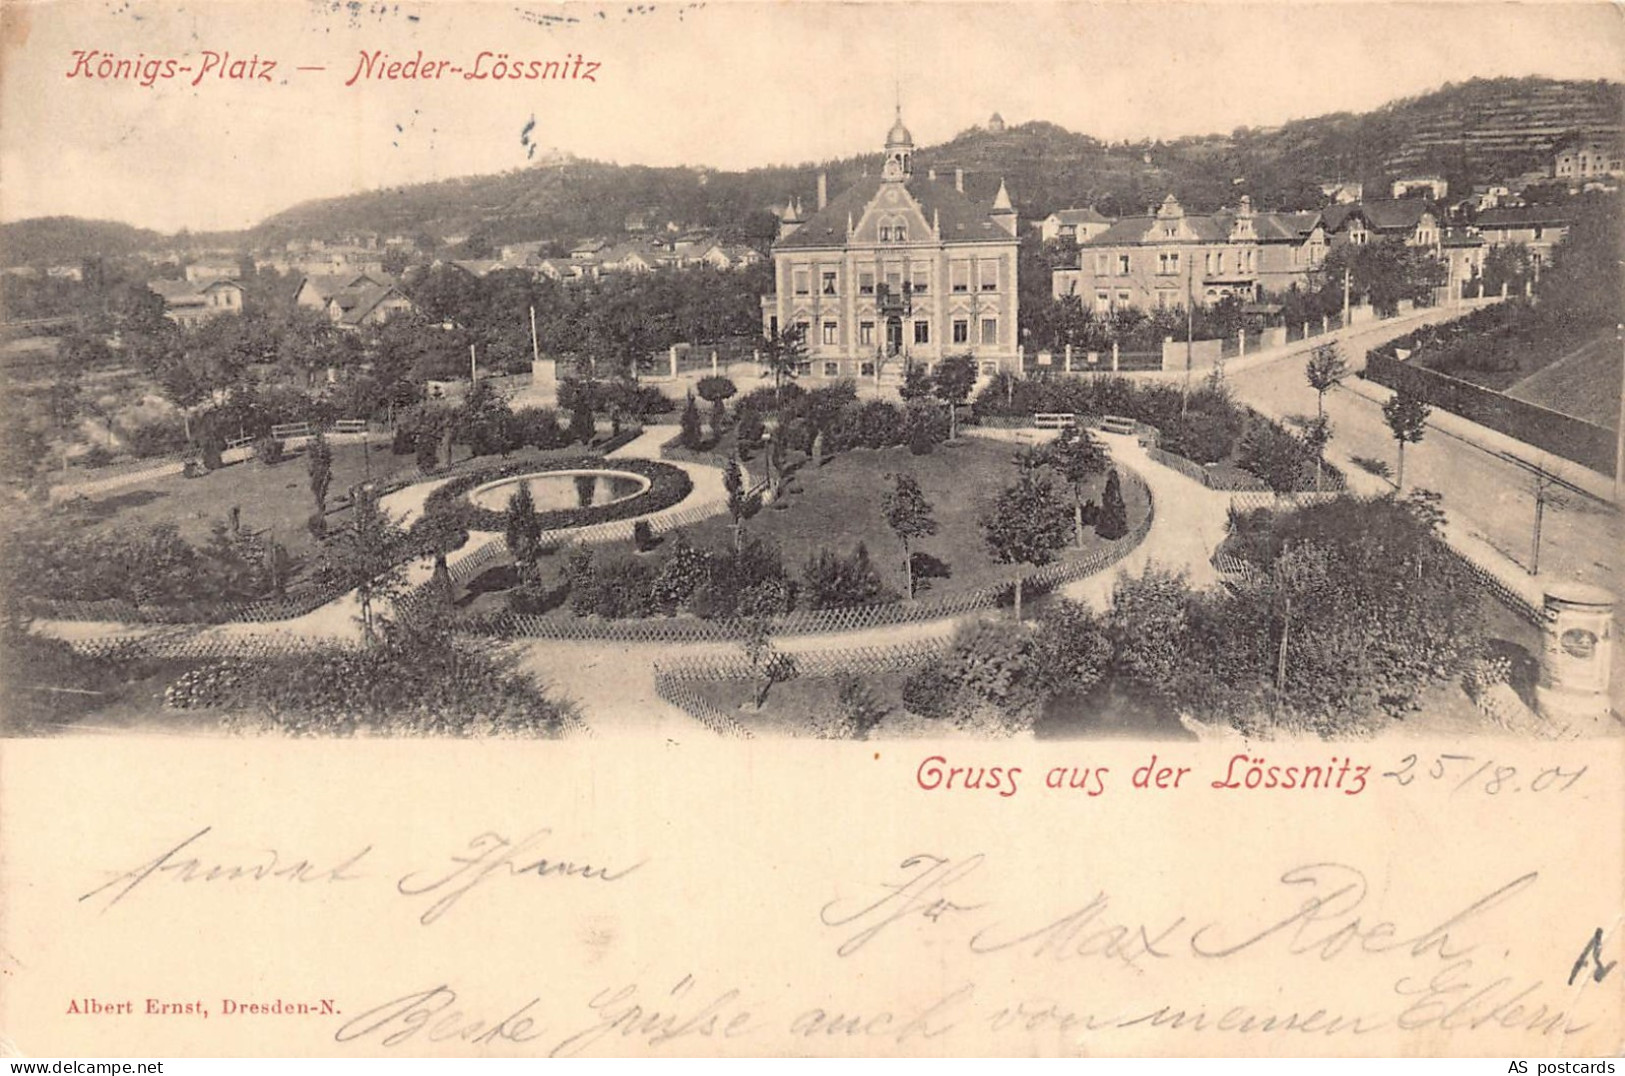 Königs-Platz – Nieder-Lössnitz
Gruss aus der Lössnitz 25/8.01
sendet Ihnen
Ihr Max Roch.
Albert Ernst, Dresden-N.
Beste Grüße auch von meinen Eltern
AS postcards